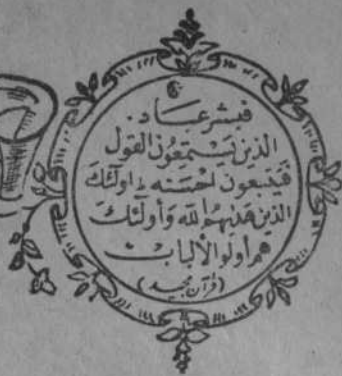 فبشر عباد.
الذين يستمعون القول
فيتبعون احسنه ط اولئك
الذين هدىهم الله وأولئك
هم أولو الألباب
(قرآن مجيد)